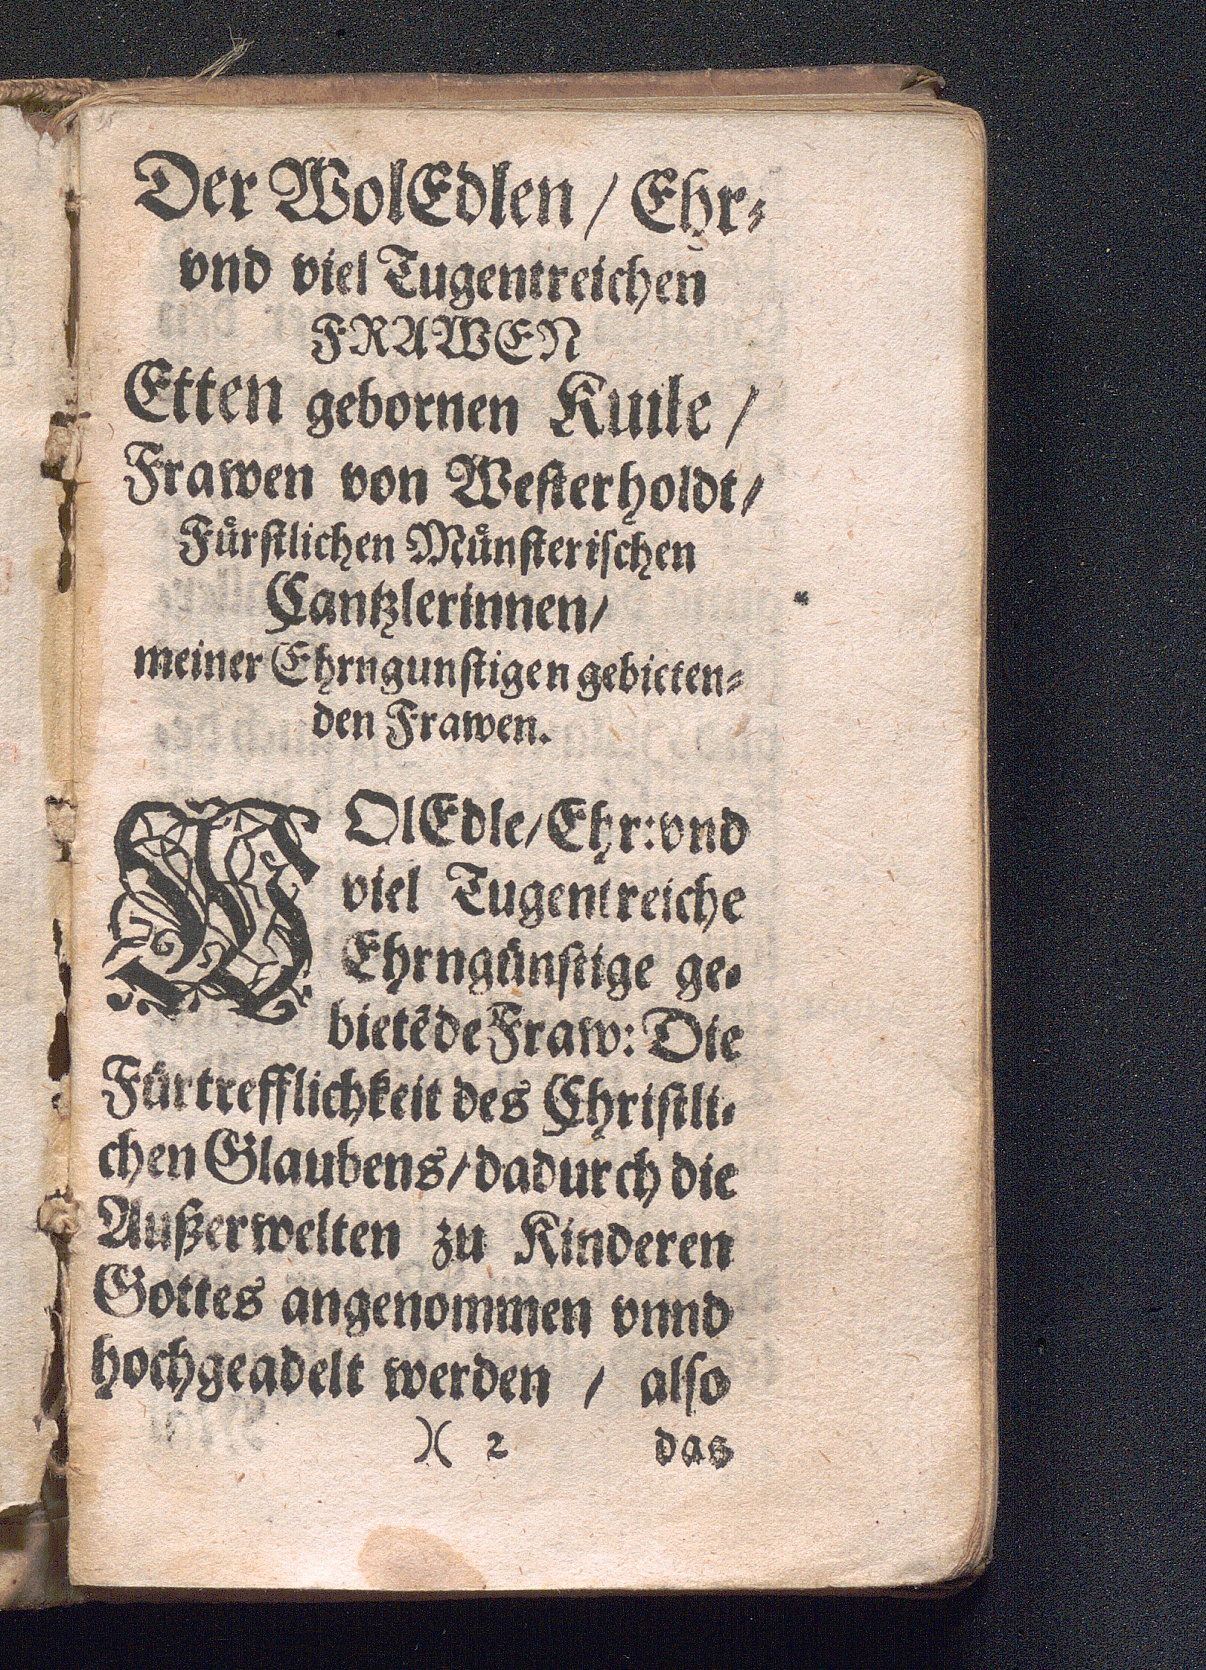 Der WolEdlen / Ehr⸗
vnd viel Tugentreichen
FRAWEN
Etten gebornen Kuile /
Frawen von Westerholdt /
Fuͤrstlichen Muͤnsterischen
Cantzlerinnen /
meiner Ehrngunstigen gebieten⸗
den Frawen.
WOlEdle / Ehr: vnd
viel Tugentreiche
Ehrngünstige ge⸗
bietẽde Fraw: Die
Fürtrefflichkeit des Christli⸗
chen Glaubens / dadurch die
Außerwelten zu Kinderen
Gottes angenommen vnnd
hochgeadelt werden / also
)( 2 das